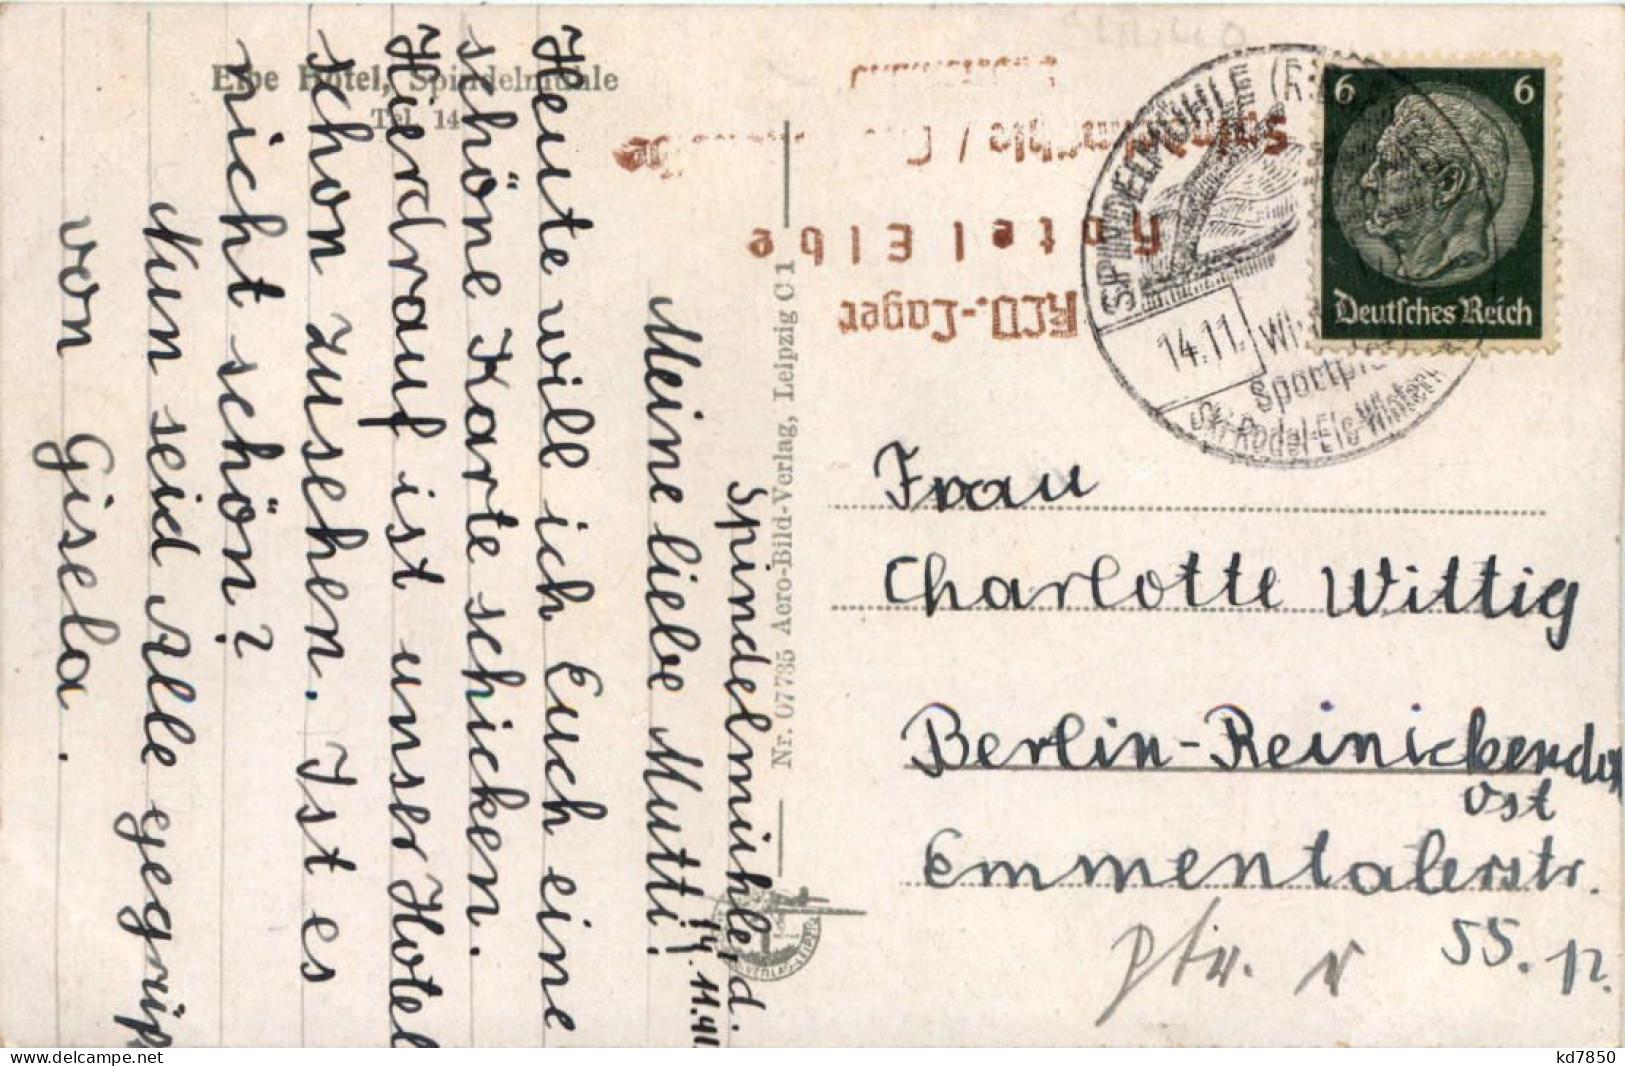 Elbe Hotel, Spindelmühle
Tel. 14
Spindelmühle, d.
14.11.41.
Meine liebe Mutti!
Heute will ich Euch eine
schöne Karte schicken.
Hierdrauf ist unser Hotel
schon zusehen. Ist es
nicht schön?
Nun seid Alle gegrüßt
von Gisela.
Nr. 07735 Aero-Bild-Verlag, Leipzig C 1
KLV.-Lager
Hotel Elbe
Spindelmühle /
SPINDELMÜHLE
14.11.
Ski-Rodel-Eis-
6 6
Deutsches Reich
Frau
Charlotte Wittig
Berlin-Reinickendorf
Ost
Emmentalerstr.
55.
kd7850